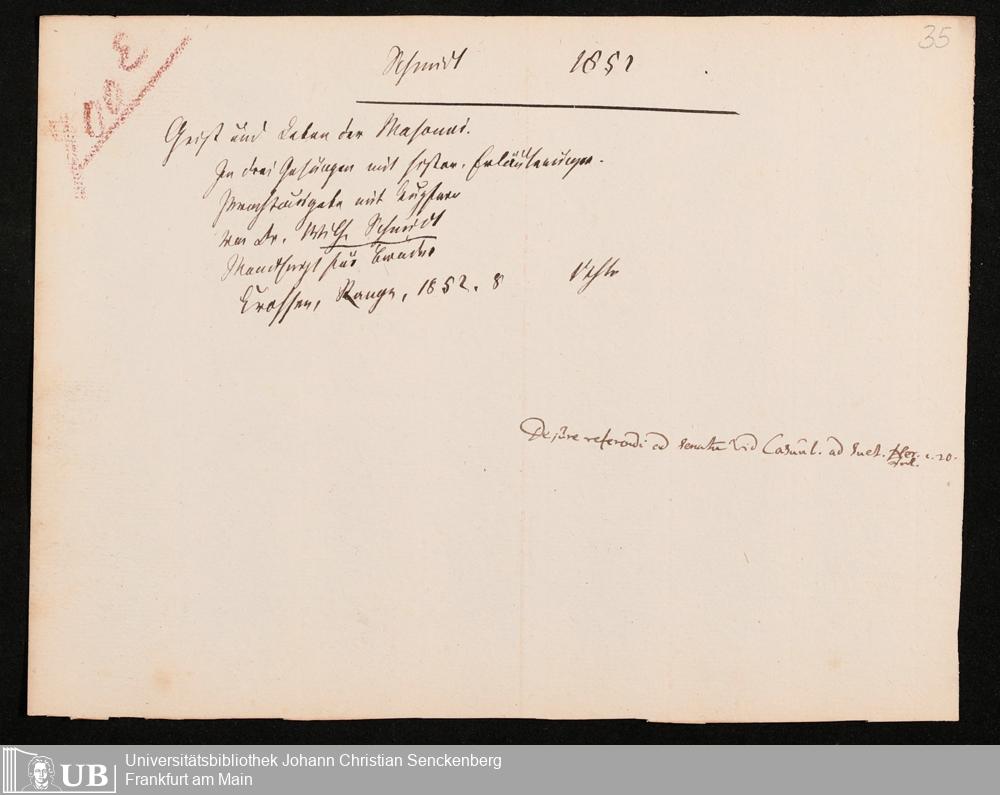 35
Schmidt 1852.
Geist und Leben der Masonei.
In drei Gesängen mit histor. Erläuterungen.
Prachtausgabe mit Kupfern
von Dr. Wilh. Schmidt
Mandscrpt für Brüder
Krossen, Range, 1852. 8 1 rthlr
De jure referendi ad senatu vid Casaub. ad Suet. c. 20.
Universitätsbibliothek Johann Christian Senckenberg
Frankfurt am Main
UB